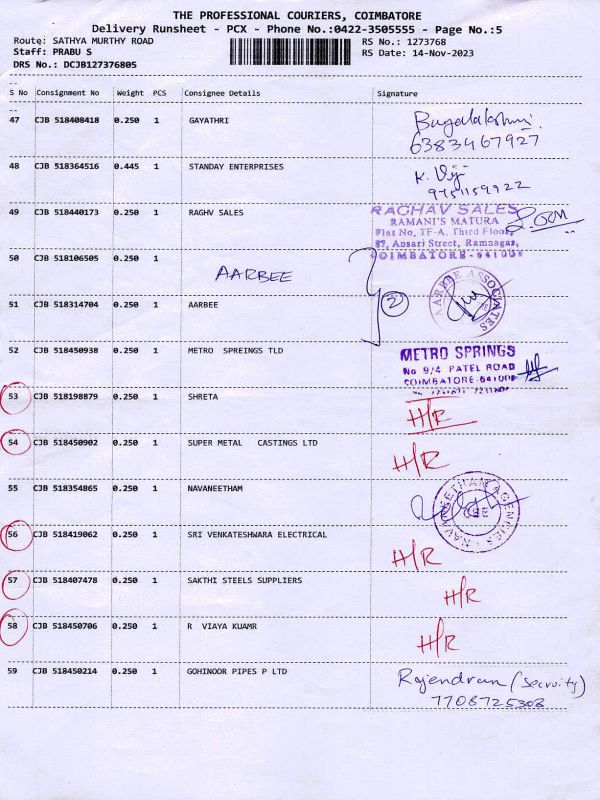 THE PROFESSIONAL COURIERS, COIMBATORE
Delivery Runsheet - PCX - Phone No.:0422-3505555 - Page No.:5
Route: SATHYA MURTHY ROAD RS No.: 1273768
Staff: PRABU S RS Date: 14-Nov-2023
DRS No.: DCJB127376805
S No Consignment No Weight PCS Consignee Details Signature
47 CJB 518408418 0.250 1 GAYATHRI
6383467927
48 CJB 518364516 0.445 1 STANDAY ENTERPRISES K. Viji
9751159922
49 CJB 518440173 0.250 1 RAGHV SALES RAGHAV SALES
RAMANI'S MATURA
Flat No, TF-A. Third Floor,
87, Ansari Street, Ramnagar,
COIMBATORE-641009
50 CJB 518106505 0.250 1 AARBEE
2
51 CJB 518314704 0.250 1 AARBEE AARBEE ASSOCIATES
52 CJB 518450938 0.250 1 METRO SPREINGS TLD METRO SPRINGS
No 9/4 PATEL ROAD
COIMBATORE-641009
53 CJB 518198879 0.250 1 SHRETA H/R
54 CJB 518450902 0.250 1 SUPER METAL CASTINGS LTD H/R
55 CJB 518354865 0.250 1 NAVANEETHAM NAVANEETHAM AGENCIES
CBE
56 CJB 518419062 0.250 1 SRI VENKATESHWARA ELECTRICAL H/R
57 CJB 518407478 0.250 1 SAKTHI STEELS SUPPLIERS H/R
58 CJB 518450706 0.250 1 R VIAYA KUAMR H/R
59 CJB 518450214 0.250 1 GOHINOOR PIPES P LTD Rajendran (Security)
7708725308